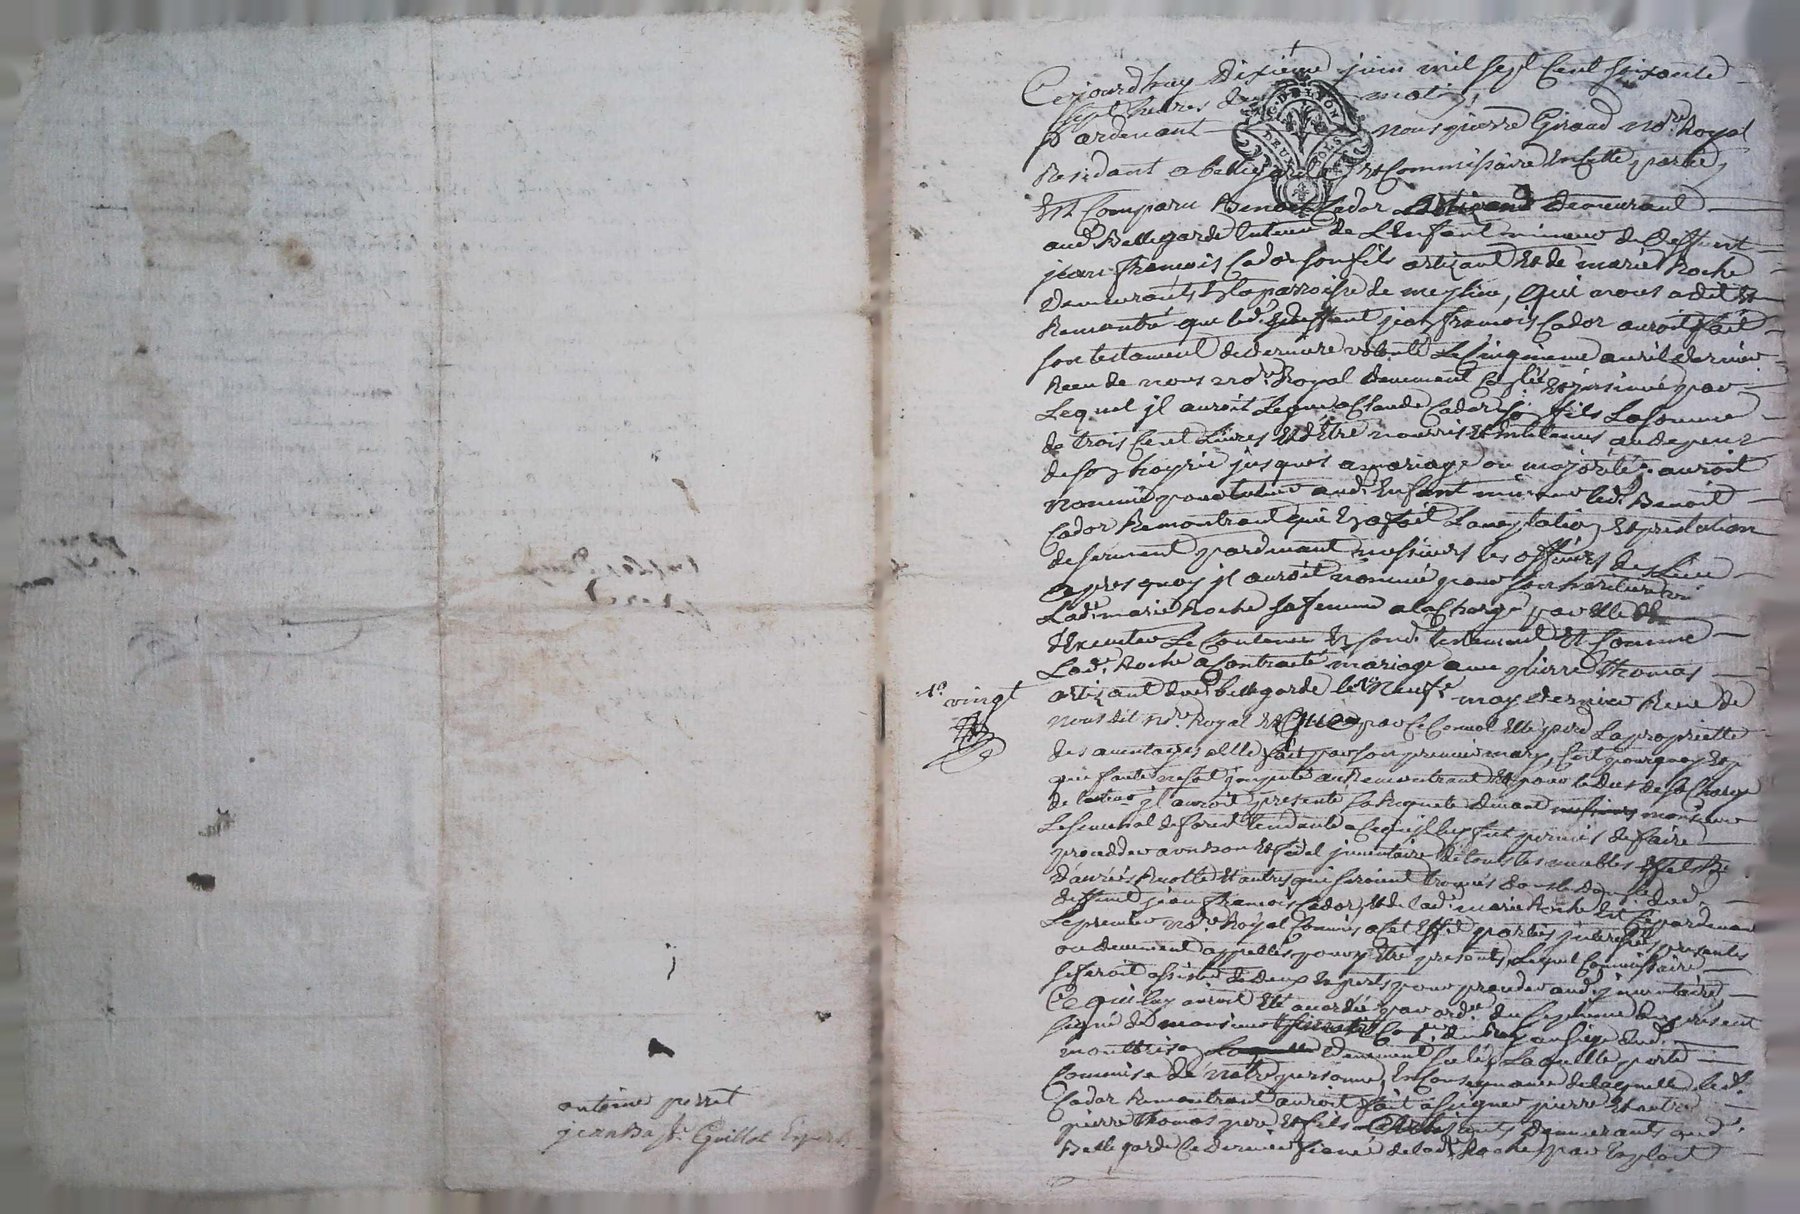 antoine perret
jean Ba.te Guillot Expert
G. DE LYON
DEUX SOLS
Cejourdhuy dixiéme juin mil sept Cent soixante
sept heures du matin,
Pardevant nous pierre Giraud no.re Royal
Residant a bellegarde Et Commissaire En cette partie
Est Comparu Benoit Cador demeurant
aud. Bellegarde tuteur de L'Enfant mineur de deffunt
jean françois Cador son fils artisant Et de marie Roche
demeurants En la parroisse de meylieu, Qui nous a dit Et
Remontré que led. deffunt jean françois Cador auroit fait
son testament de derniere volonté Le Cinquieme avril dernier
Receu de nous no.re Royal deuement Controllé Et insinué par
Lequel il auroit Legué a Claude Cador son fils La somme
de trois Cent Livres Et d'Etre nourris Et Entretenus au depens
de son hoyrie jusques a mariage ou majorité, auroit
nommé pour tuteur aud. Enfant mineur led. Benoit
Cador Remontrant qui En a fait L'aceptation Et prestation
de serment pardevant messieurs les officiers des Lieu
apres quoy il auroit nommé pour son heritiere
Lad. marie Roche sa femme a la Charge par Elle
d'Executer Le Contenu En sond. testament Et Comme
Lad. Roche a Contracté mariage avec pierre thomas
artisant dud. bellegarde le neuf may dernier Receu de
1.o vingt
nous dit no.re Royal Et Que par Ce Convol Elle perd La propriette
des avantages a Elle fait par son premier mary, C'est pourquoy Et
qui faute ne soit imputé au Remontrant Et pour le dus de sa Charge
de tuteur il auroit presenté sa Requete devant monsieur
Le senechal de forest tendante a Ce qu'il luy fut permis de faire
proceder a un bon Et fidel inventaire de tous les meubles Effets
danrés Recolte Et autres qui seroient trouvés dans le domicile dud.
deffunt jean françois Cador, Et de lad. marie Roche Et Ce pardevant
Le premier no.re Royal Commis a Cet Effet parties interessés presentes
ou deuement appellés pour y Etre presents, Lequel Commissaire
se feroit assister de deux Experts pour proceder aud. inventaire,
Ce qui luy auroit Eté accordée par ord.ce du septieme du present
signé de monsieur Cons.er du Roy au siege dud.
montbrison deuement scelée, Laquelle porte
Commise de notre personne, En Consequance de laquelle led.
Cador Remontrant auroit fait assigner pierre Et autre
pierre thomas pere Et fils demeurants aud.
Bellegarde Ce dernier fiancé de lad. Roche par Exploit